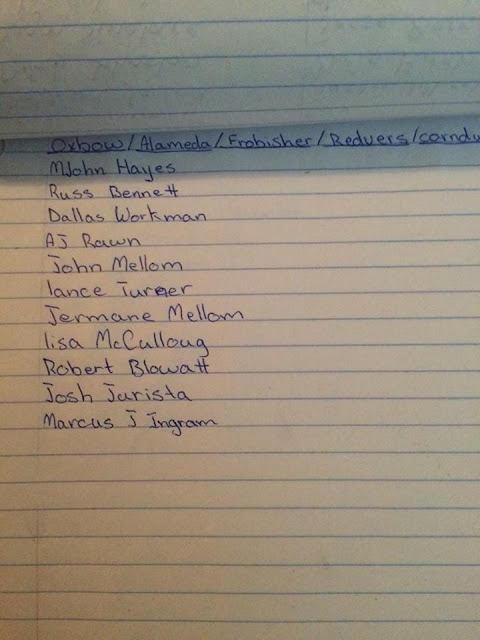 Oxbow/Alameda/Frobisher/Redvers/corndu
MJohn Hayes
Russ Bennett
Dallas Workman
AJ Rawn
John Mellom
lance Turner
Jermane Mellom
lisa McCulloug
Robert Blowatt
Josh Jurista
Marcus J Ingram